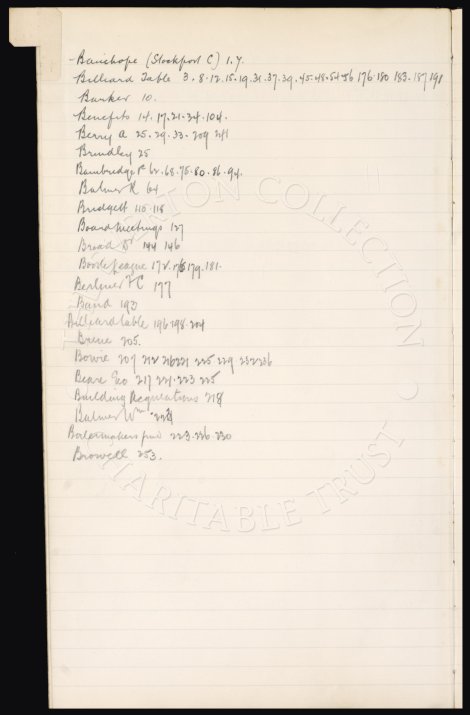 Bainhope (Stockport C) 1.7.
Billiard Table 3.8.12.15.19.31.37.39.45.48.54.56 176.180 183.187 191
Bunker 10.
Benefits 14.17.21.24.104.
Berry A 25.29.33.209 241
Brindley 25
Bambridge R 62.68.75.80.86.94.
Balmer R 64
Bridgett 115.118
Board Meetings 127
Broad Dr 144 146
Bootle League 172.176 179.181.
Berliner F C 177
Band 193
Billiard table 196 198.204
Brene 205.
Bowie 207 212 216 221 225 229 232 236
Beare Geo 217 221.223 225
Building Regulations 218
Balmer Wm 228
Boilermakers fund 223.226 230
Browell 253.
THE EVERTON COLLECTION
CHARITABLE TRUST